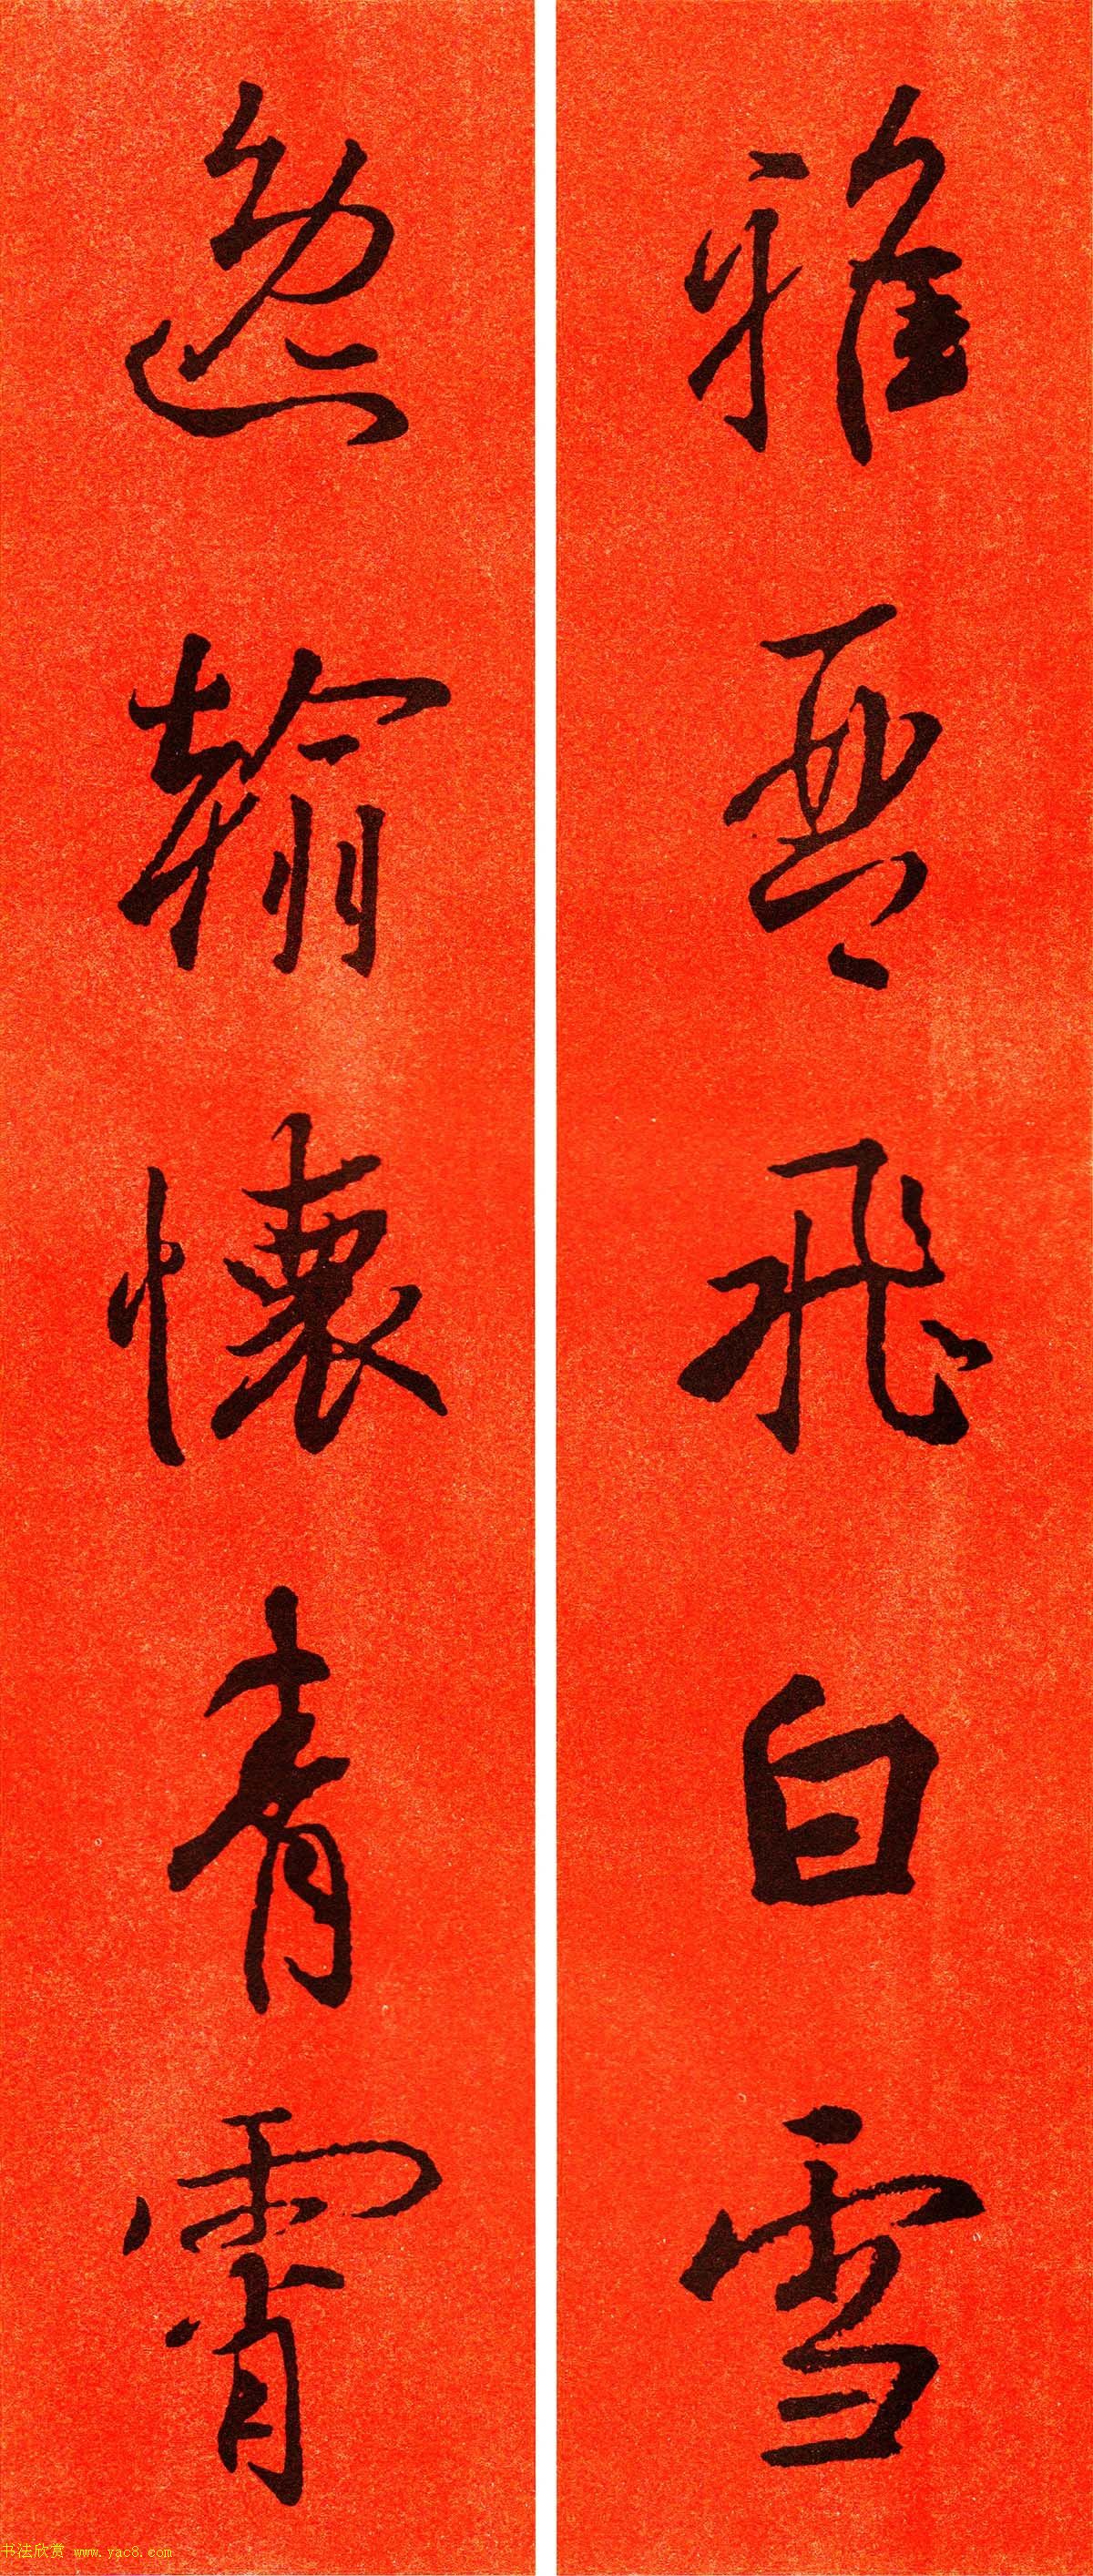 雅琴飛白雪
逸翰懷青霄
书法欣赏 www.yac8.com